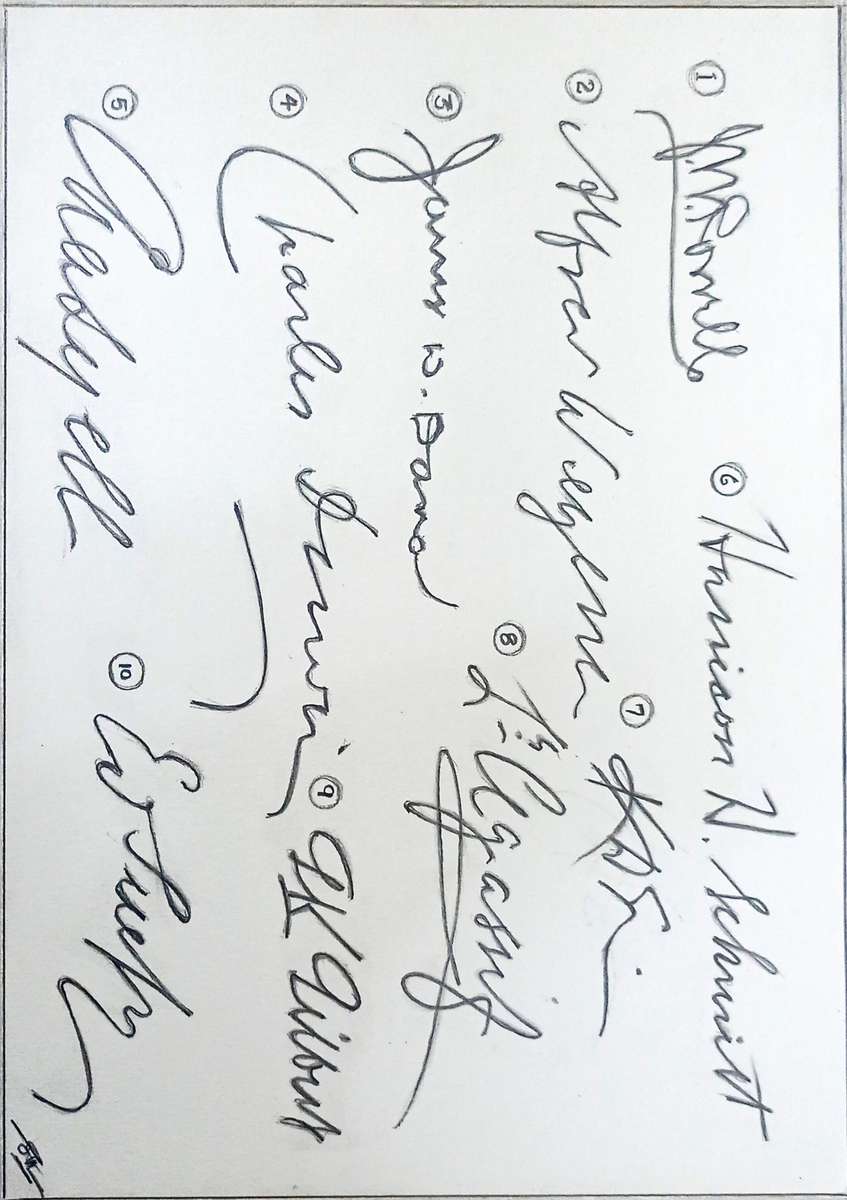 ① J.W. Powell
② Alfred Wegener
③ James D. Dana
④ Charles Darwin
⑤ Cha Lyell
⑥ Harrison H. Schmitt
⑦
⑧ Ls Agassiz
⑨ GK Gilbert
⑩ Ed Suess